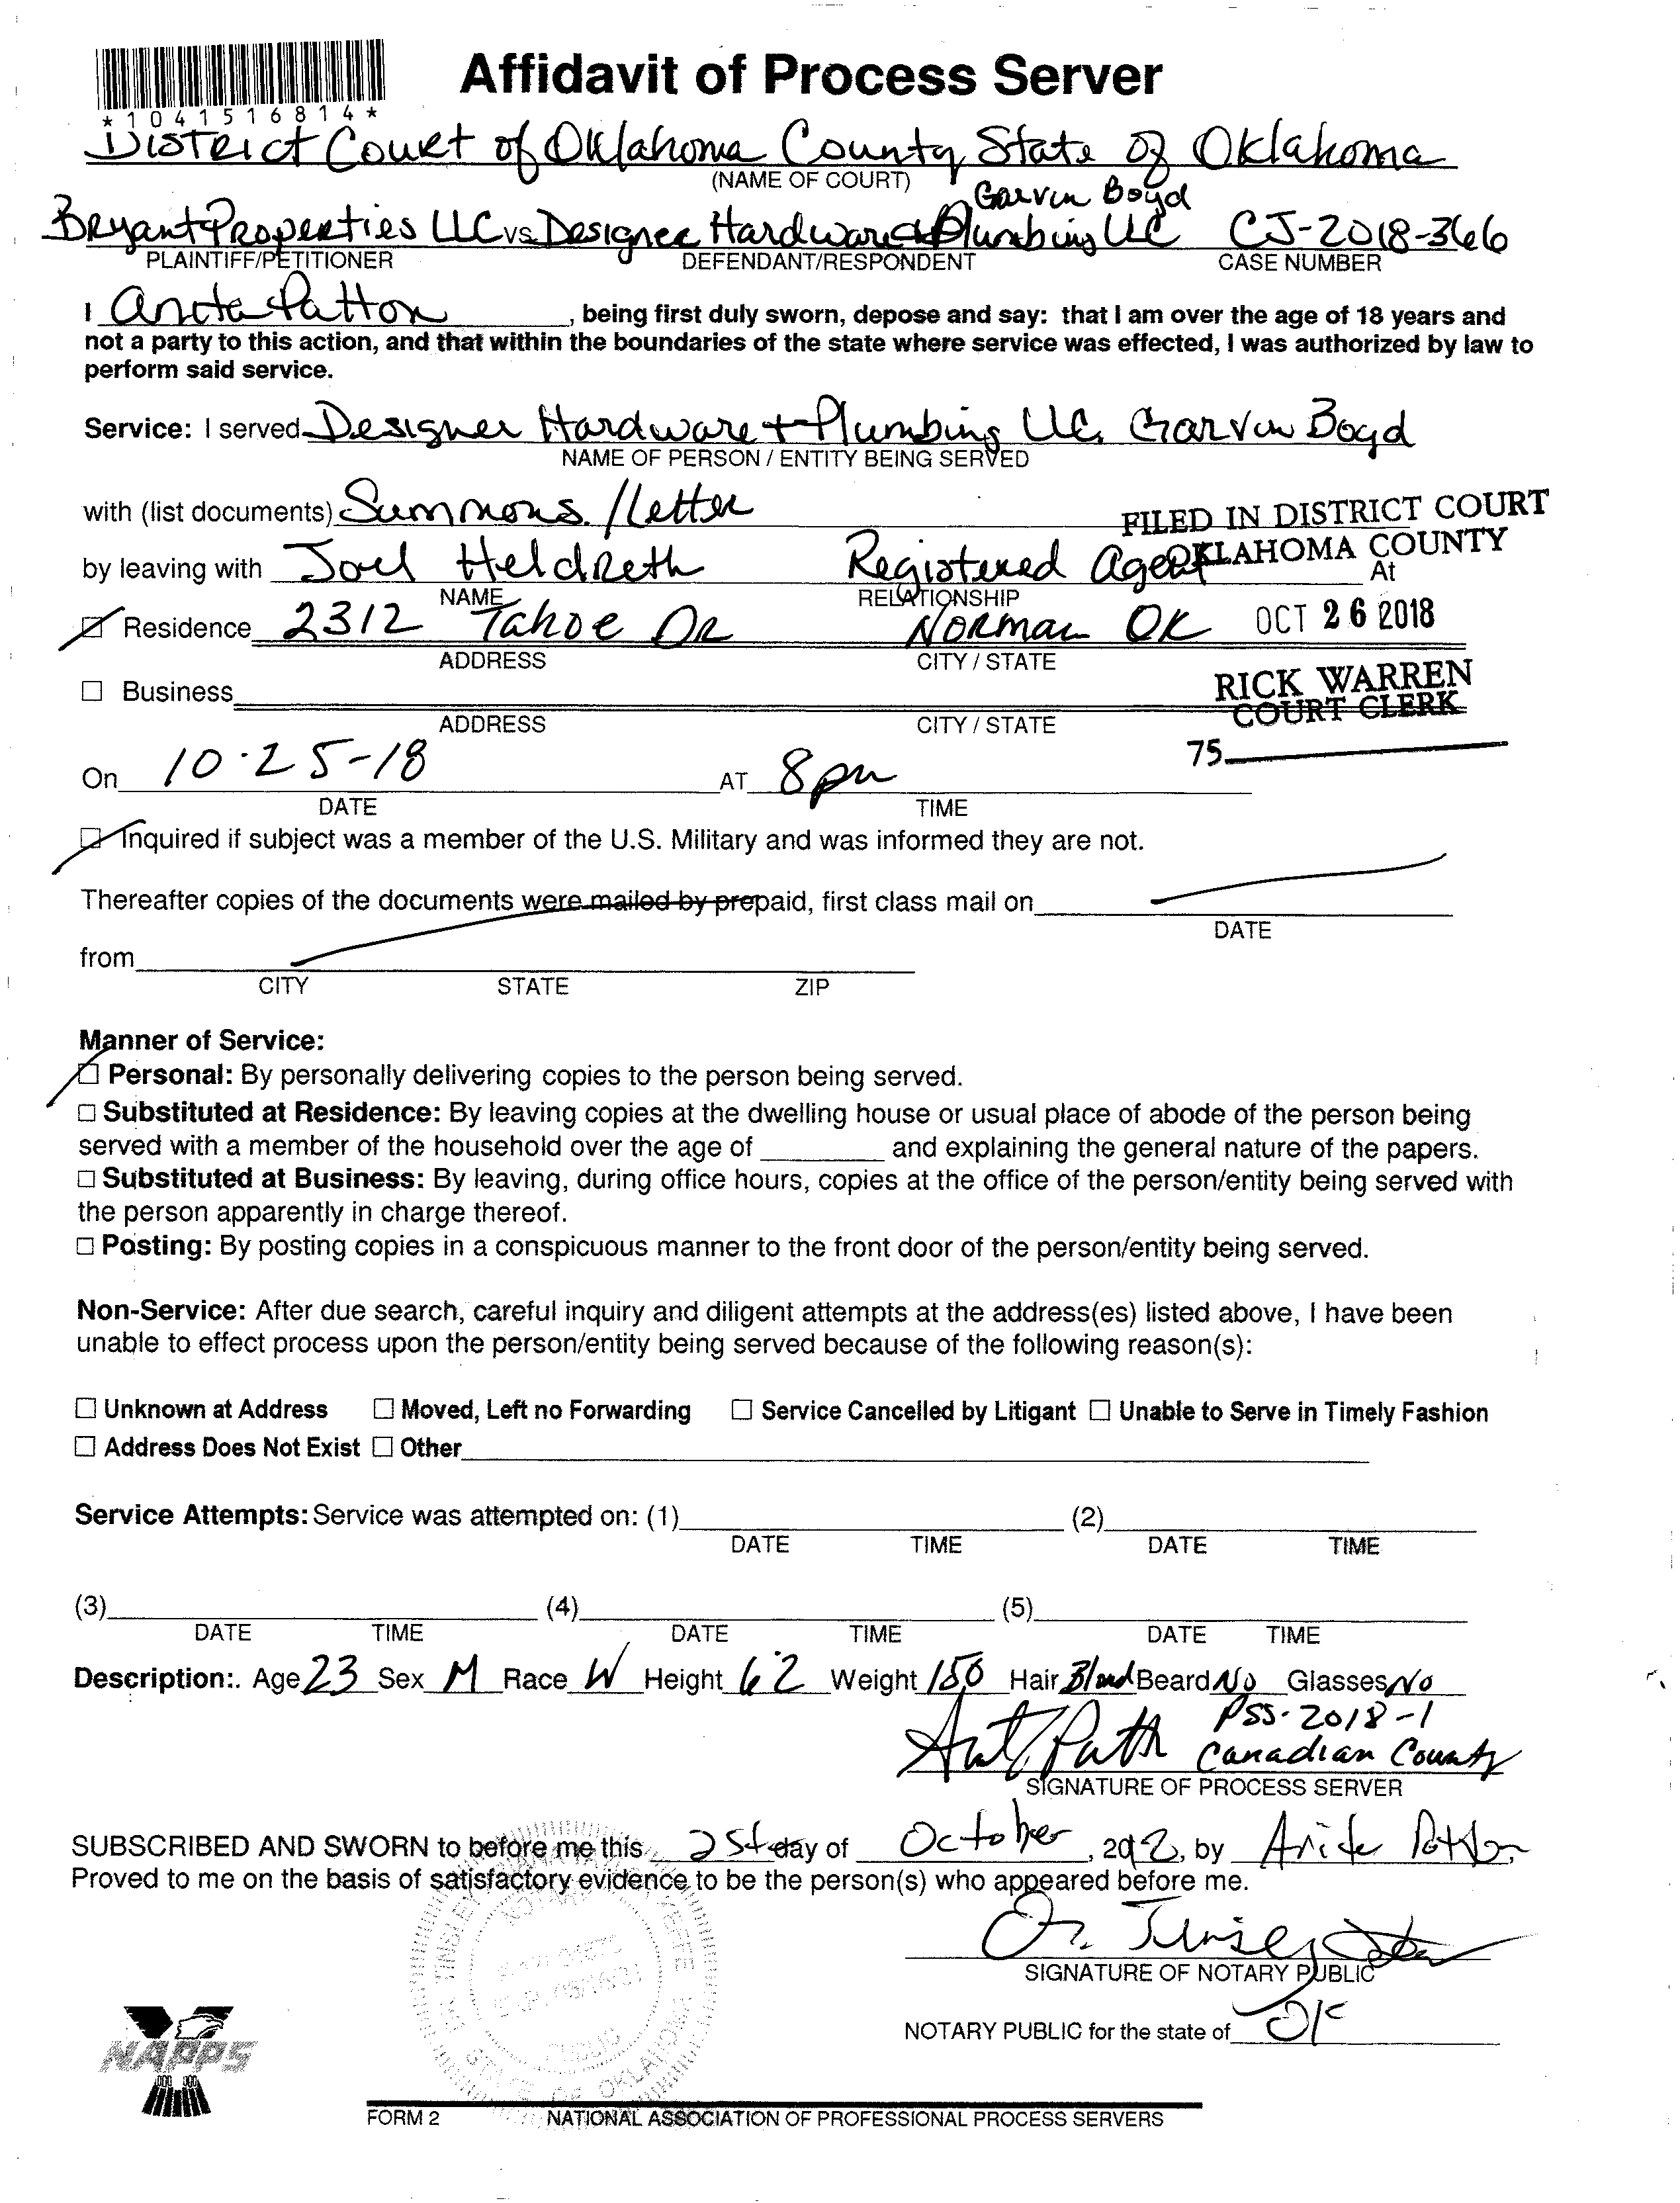 Affidavit of Process Server
*1041516814*
District Court of Oklahoma County State of Oklahoma
(NAME OF COURT)
Garvin Boyd
Bryant Properties LLC vs Designer Hardware & Plumbing LLC CJ-2018-366
PLAINTIFF/PETITIONER DEFENDANT/RESPONDENT CASE NUMBER
I Anita Patton, being first duly sworn, depose and say: that I am over the age of 18 years and
not a party to this action, and that within the boundaries of the state where service was effected, I was authorized by law to
perform said service.
Service: I served Designer Hardware + Plumbing LLC. Garvin Boyd
NAME OF PERSON / ENTITY BEING SERVED
with (list documents) Summons. /Letter
FILED IN DISTRICT COURT
OKLAHOMA COUNTY
by leaving with Joel Heldreth Registered Agent At
NAME RELATIONSHIP
Residence 2312 Tahoe DR Norman OK OCT 26 2018
ADDRESS CITY / STATE
RICK WARREN
COURT CLERK
Business
ADDRESS CITY / STATE
75
On 10-25-18 AT 8pm
DATE TIME
Inquired if subject was a member of the U.S. Military and was informed they are not.
Thereafter copies of the documents were mailed by prepaid, first class mail on
DATE
from
CITY STATE ZIP
Manner of Service:
Personal: By personally delivering copies to the person being served.
Substituted at Residence: By leaving copies at the dwelling house or usual place of abode of the person being
served with a member of the household over the age of and explaining the general nature of the papers.
Substituted at Business: By leaving, during office hours, copies at the office of the person/entity being served with
the person apparently in charge thereof.
Posting: By posting copies in a conspicuous manner to the front door of the person/entity being served.
Non-Service: After due search, careful inquiry and diligent attempts at the address(es) listed above, I have been
unable to effect process upon the person/entity being served because of the following reason(s):
Unknown at Address Moved, Left no Forwarding Service Cancelled by Litigant Unable to Serve in Timely Fashion
Address Does Not Exist Other
Service Attempts: Service was attempted on: (1) (2)
DATE TIME DATE TIME
(3) (4) (5)
DATE TIME DATE TIME DATE TIME
Description:. Age 23 Sex M Race W Height 6'2 Weight 150 Hair Blond Beard No Glasses No
PSS-2018-1
Canadian County
SIGNATURE OF PROCESS SERVER
SUBSCRIBED AND SWORN to before me this day of October, by
Proved to me on the basis of satisfactory evidence to be the person(s) who appeared before me.
SIGNATURE OF NOTARY PUBLIC
NOTARY PUBLIC for the state of OK
STATE OF OKLAHOMA
PUBLIC
NAPPS
FORM 2 NATIONAL ASSOCIATION OF PROFESSIONAL PROCESS SERVERS